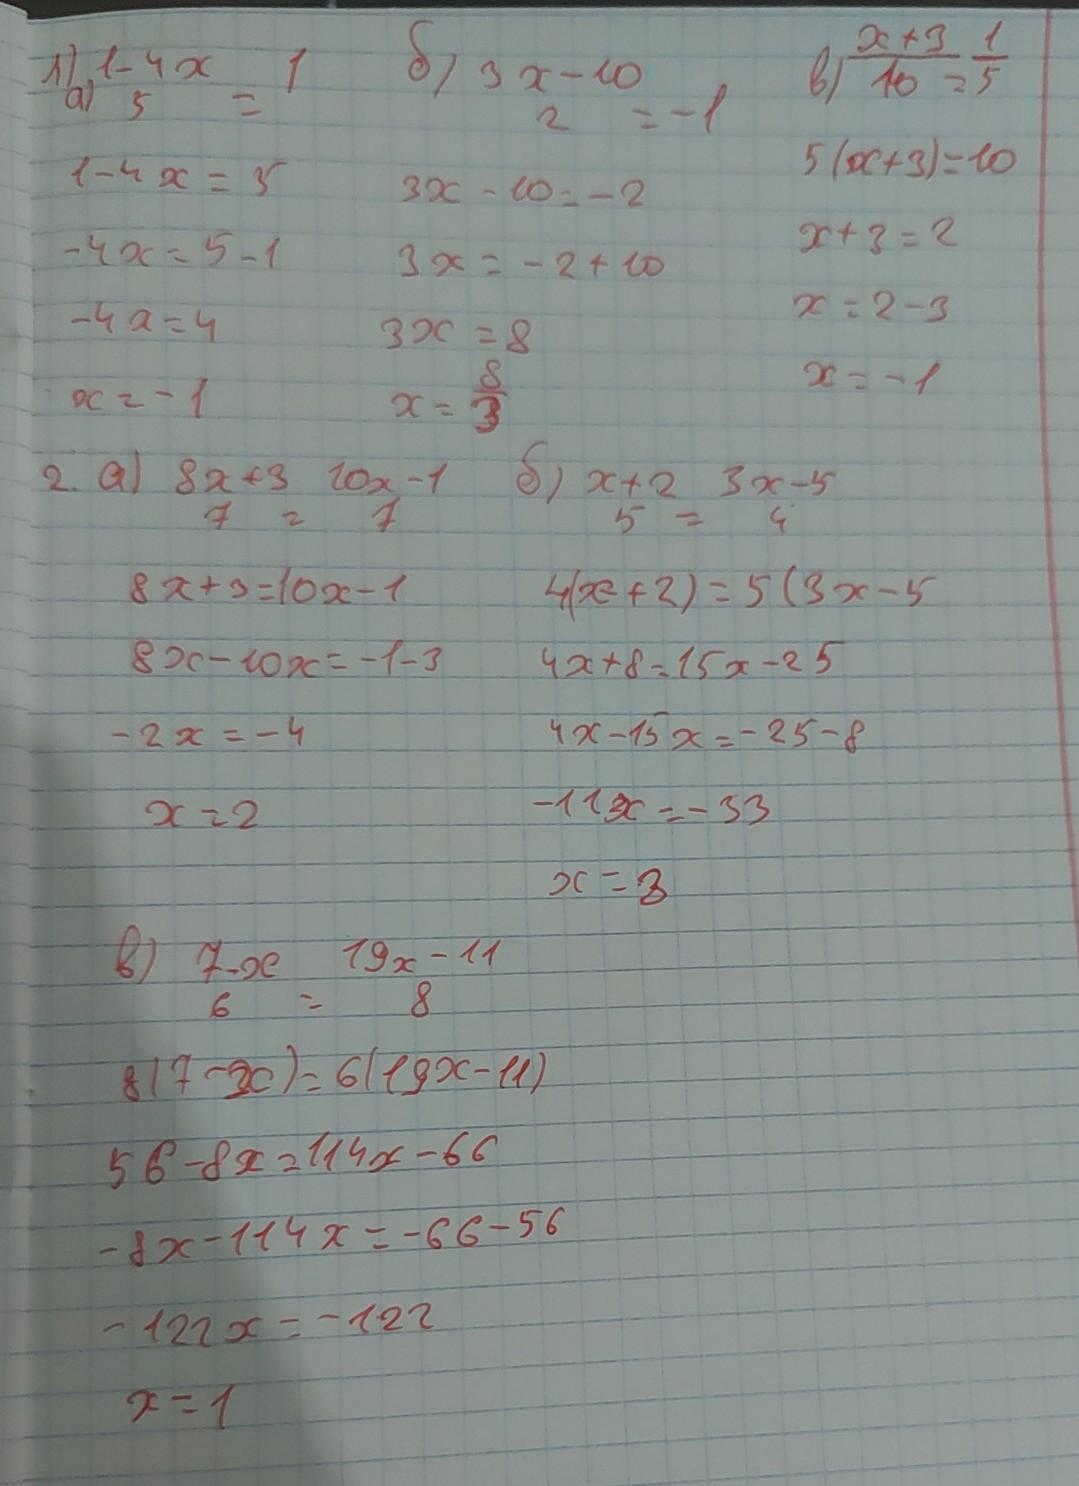 1) 1-4x 1 б) 3x-10 в) x+3 1
а) 5 = 2 = -1 10 = 5
1-4x=5 3x-10=-2 5(x+3)=10
-4x=5-1 3x=-2+10 x+3=2
-4x=4 3x=8 x=2-3
x=-1 x=8/3 x=-1
2. а) 8x+3 10x-1 б) x+2 3x-5
7 = 7 5 = 4
8x+3=10x-1 4(x+2)=5(3x-5
8x-10x=-1-3 4x+8=15x-25
-2x=-4 4x-15x=-25-8
x=2 -11x=-33
x=3
в) 7-x 19x-11
6 = 8
8(7-x)=6(19x-11)
56-8x=114x-66
-8x-114x=-66-56
-122x=-122
x=1